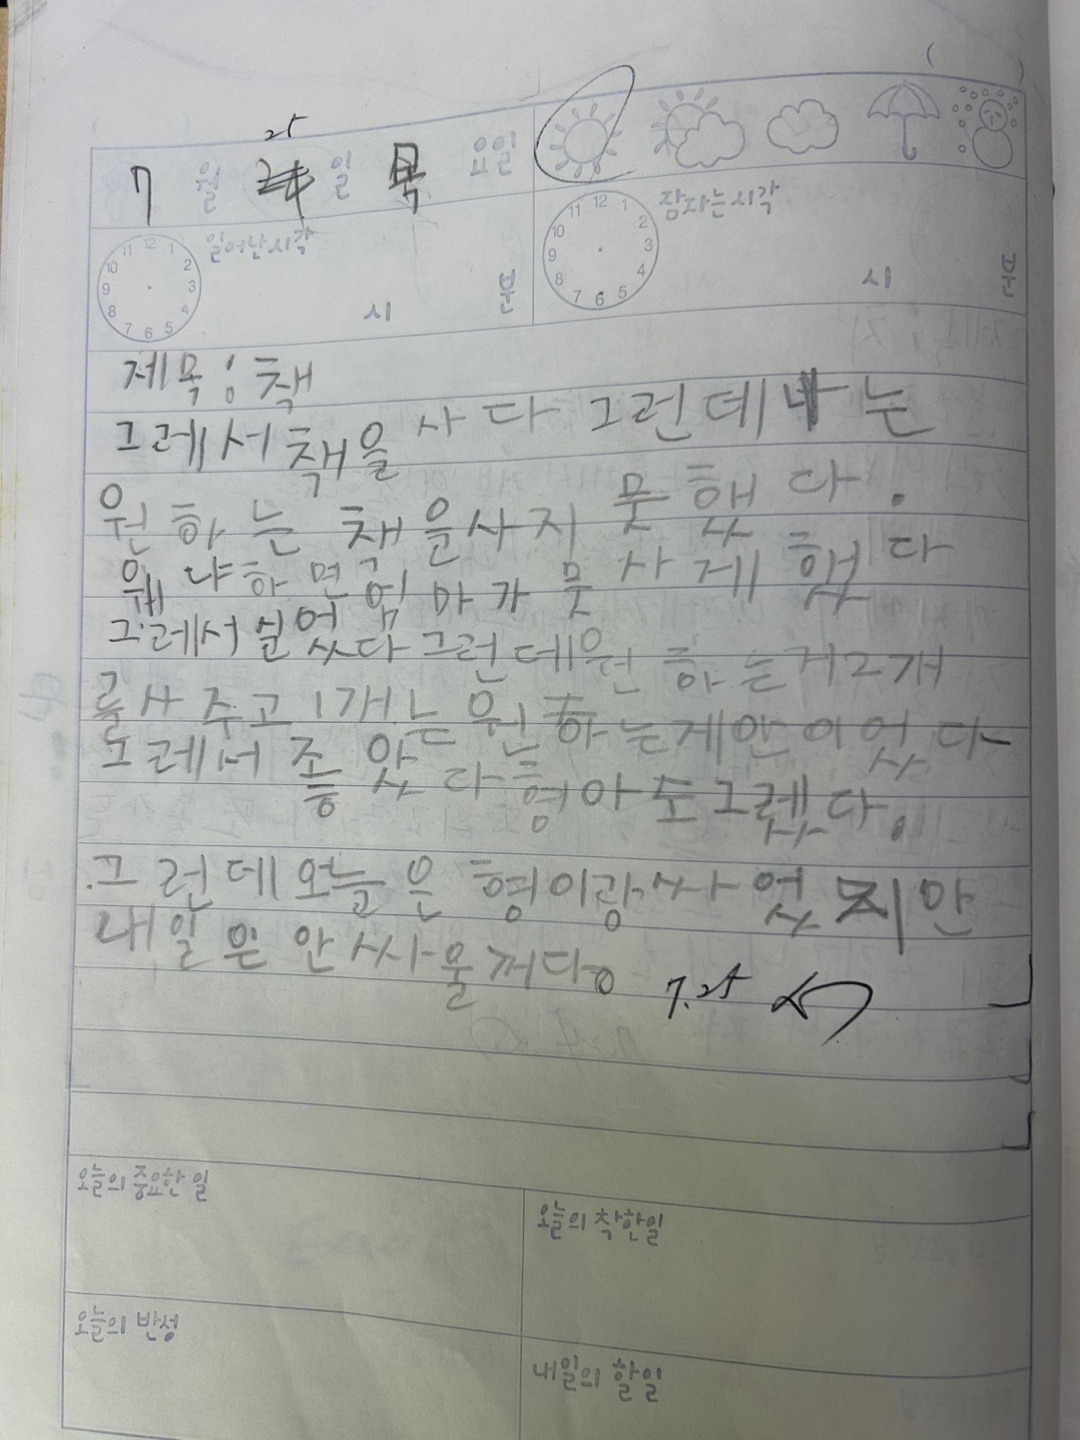 25
7 월 일 목 요일
일어난시각
12 1 2 3 4 5 6 7 8 9 10 11
시 분
잠자는시각
12 1 2 3 4 5 6 7 8 9 10 11
시 분
제목 : 책
그레서 책을 사다 그런데 나는
원하는 책을사지 못했다.
왜냐하면 엄마가 못사게 했다
그레서 실었다 그런데 원하는거2개
를사주고 1개는 원하는게안이었다
그레서 좋았다 형아도 그렜다.
그런데 오늘은 형이랑 싸었지만
내일은 안싸울꺼다。 7.25
오늘의 중요한 일
오늘의 착한일
오늘의 반성
내일의 할일